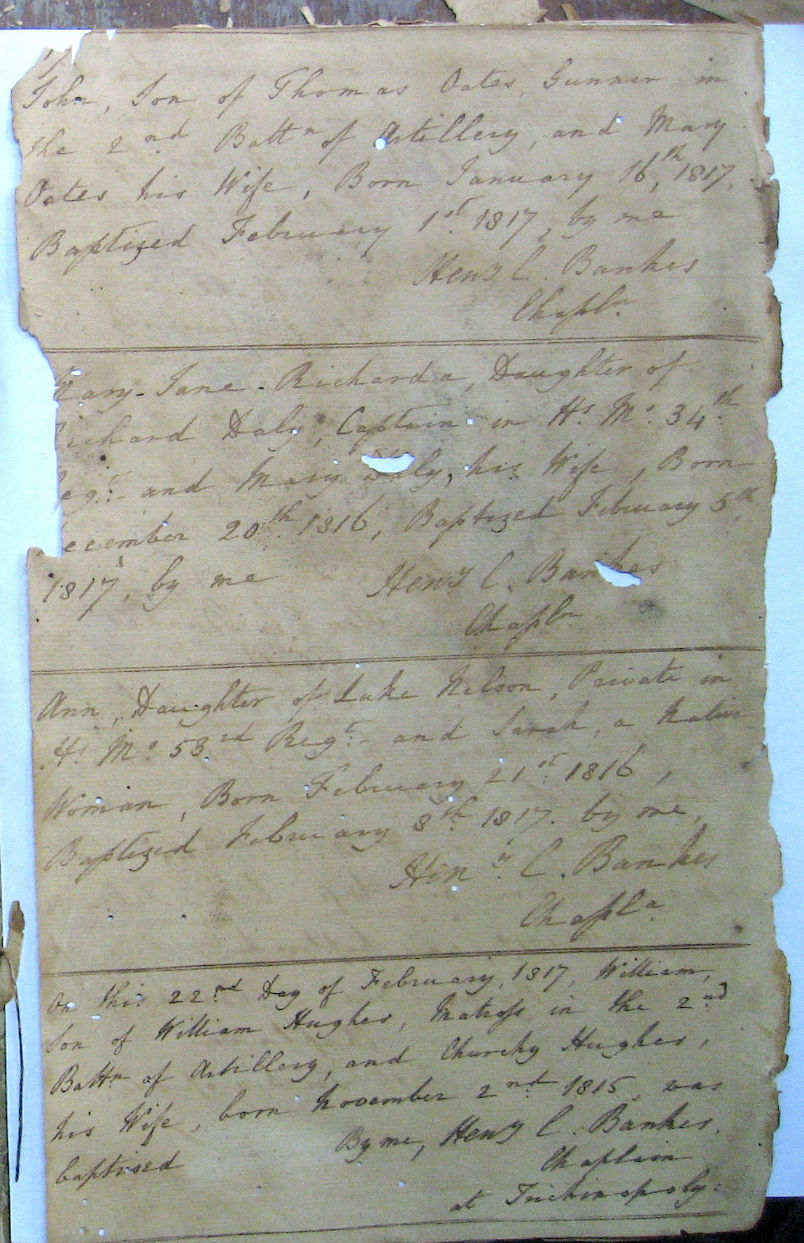 John, Son of Thomas Oates, Gunner in
the 2nd Battn of Artillery, and Mary
Oates his Wife, Born January 16th, 1817,
Baptized February 1st 1817, by me
Heny C. Bankes
Chapln
Mary-Jane-Richarda, Daughter of
Richard Daly, Captain in Hs Ms 34th
Regt and Mary Daly, his Wife, Born
December 20th 1816, Baptized February 5th
1817, by me Heny C. Bankes
Chapln
Ann, Daughter of Luke Nelson, Private in
Hs Ms 53rd Regt and Sarah, a Native
Woman, Born February 21st 1816,
Baptized February 8th 1817. by me,
Heny C. Bankes
Chapln
On this 22nd Day of February, 1817, William,
Son of William Hughes, Matross in the 2nd
Battn of Artillery, and Hughes,
his Wife, born November 2nd 1815, was
baptised By me, Heny C. Bankes.
Chaplain
at Trichinopoly.